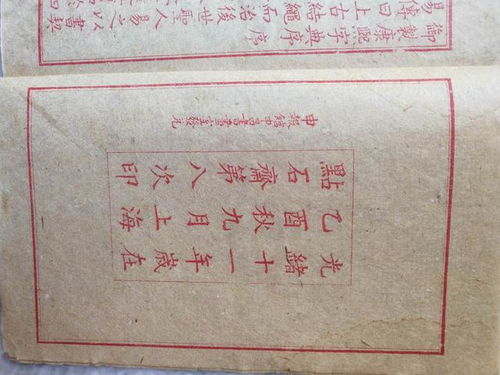 御製康熙字典序
易傳曰上古結繩而治後世聖人易之以書契
光緒十一年歲在
乙酉秋九月上海
點石齋第八次印
申報館申昌書畫室發兌